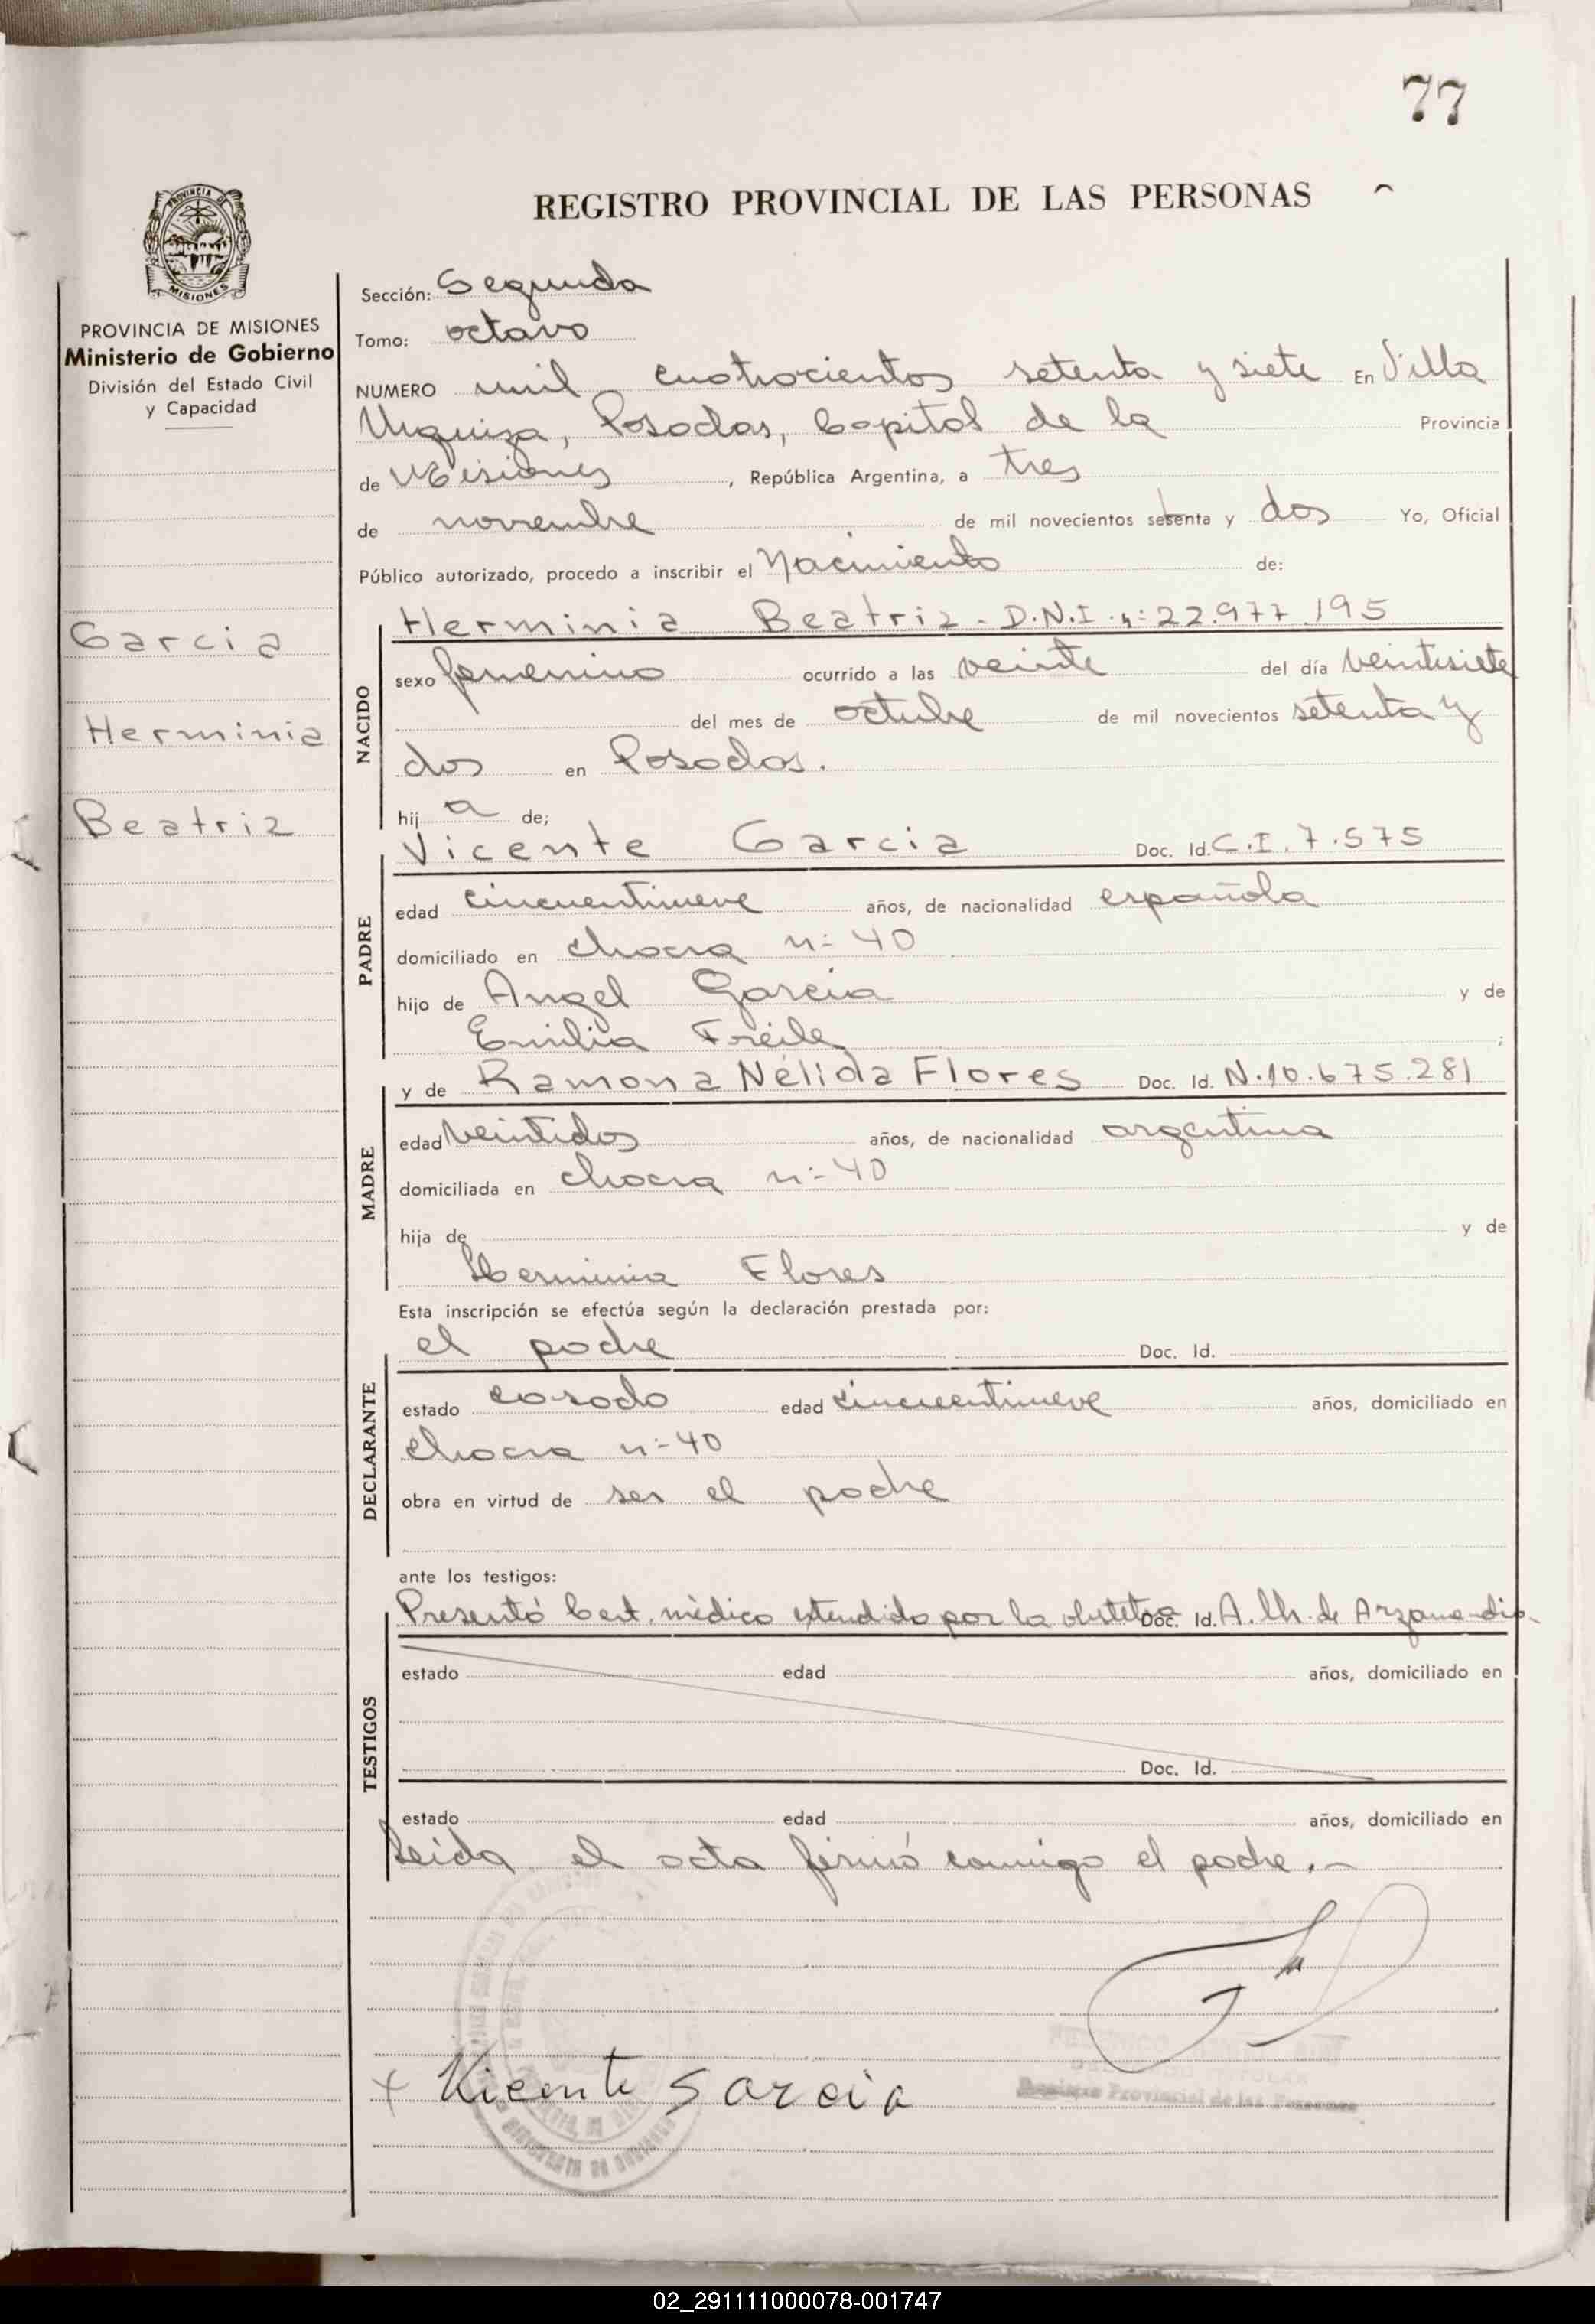 77
REGISTRO PROVINCIAL DE LAS PERSONAS
PROVINCIA DE MISIONES
Ministerio de Gobierno
División del Estado Civil
y Capacidad
Garcia
Herminia
Beatriz
Sección: Segunda
Tomo: octavo
NUMERO mil cuatrocientos setenta y siete En Villa
Urquiza, Posadas, Capital de la Provincia
de Misiones, República Argentina, a tres
de noviembre de mil novecientos setenta y dos Yo, Oficial
Público autorizado, procedo a inscribir el Nacimiento de:
NACIDO
Herminia Beatriz - D.N.I. n: 22.977.195
sexo femenino ocurrido a las veinte del día veintisiete
del mes de octubre de mil novecientos setenta y
dos en Posadas.
hij a de;
PADRE
Vicente Garcia Doc. Id. C.I. 7.575
edad cincuentinueve años, de nacionalidad española
domiciliado en chacra n: 40
hijo de Angel Garcia y de
Emilia Freile ;
MADRE
y de Ramona Nélida Flores Doc. Id. N. 10.675.281
edad veintidos años, de nacionalidad argentina
domiciliada en chacra n: 40
hija de y de
Herminia Flores
Esta inscripción se efectúa según la declaración prestada por:
DECLARANTE
el padre Doc. Id.
estado casado edad cincuentinueve años, domiciliado en
chacra n: 40
obra en virtud de ser el padre
ante los testigos:
TESTIGOS
Presentó Cert. médico extendido por la obstetra Doc. Id. A. Ch. de Arzamendia
estado edad años, domiciliado en
Doc. Id.
estado edad años, domiciliado en
Leida el acta firmó conmigo el padre.-
x Vicente Garcia
Registro Provincial de las Personas
02_291111000078-001747